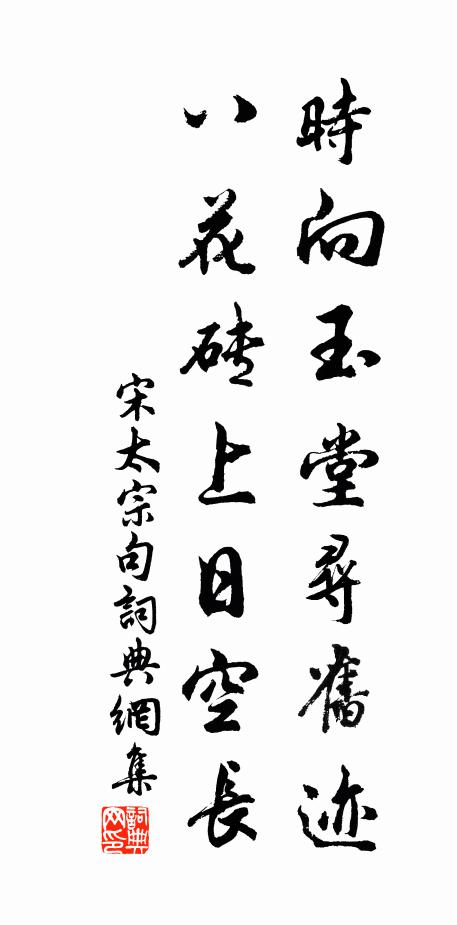 時向玉堂尋舊迹
八花磚上日空長
宋太宗句詞典網集
詞典網印